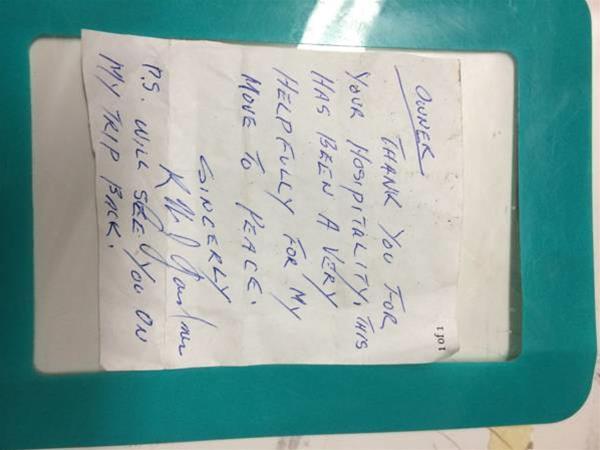 OWNER
THANK YOU FOR
YOUR HOSPITALITY, THIS
HAS BEEN A VERY
HELPFULLY FOR MY
MOVE TO PEACE.
SINCERLY
P.S. WILL SEE YOU ON
MY TRIP BACK.
1 of 1